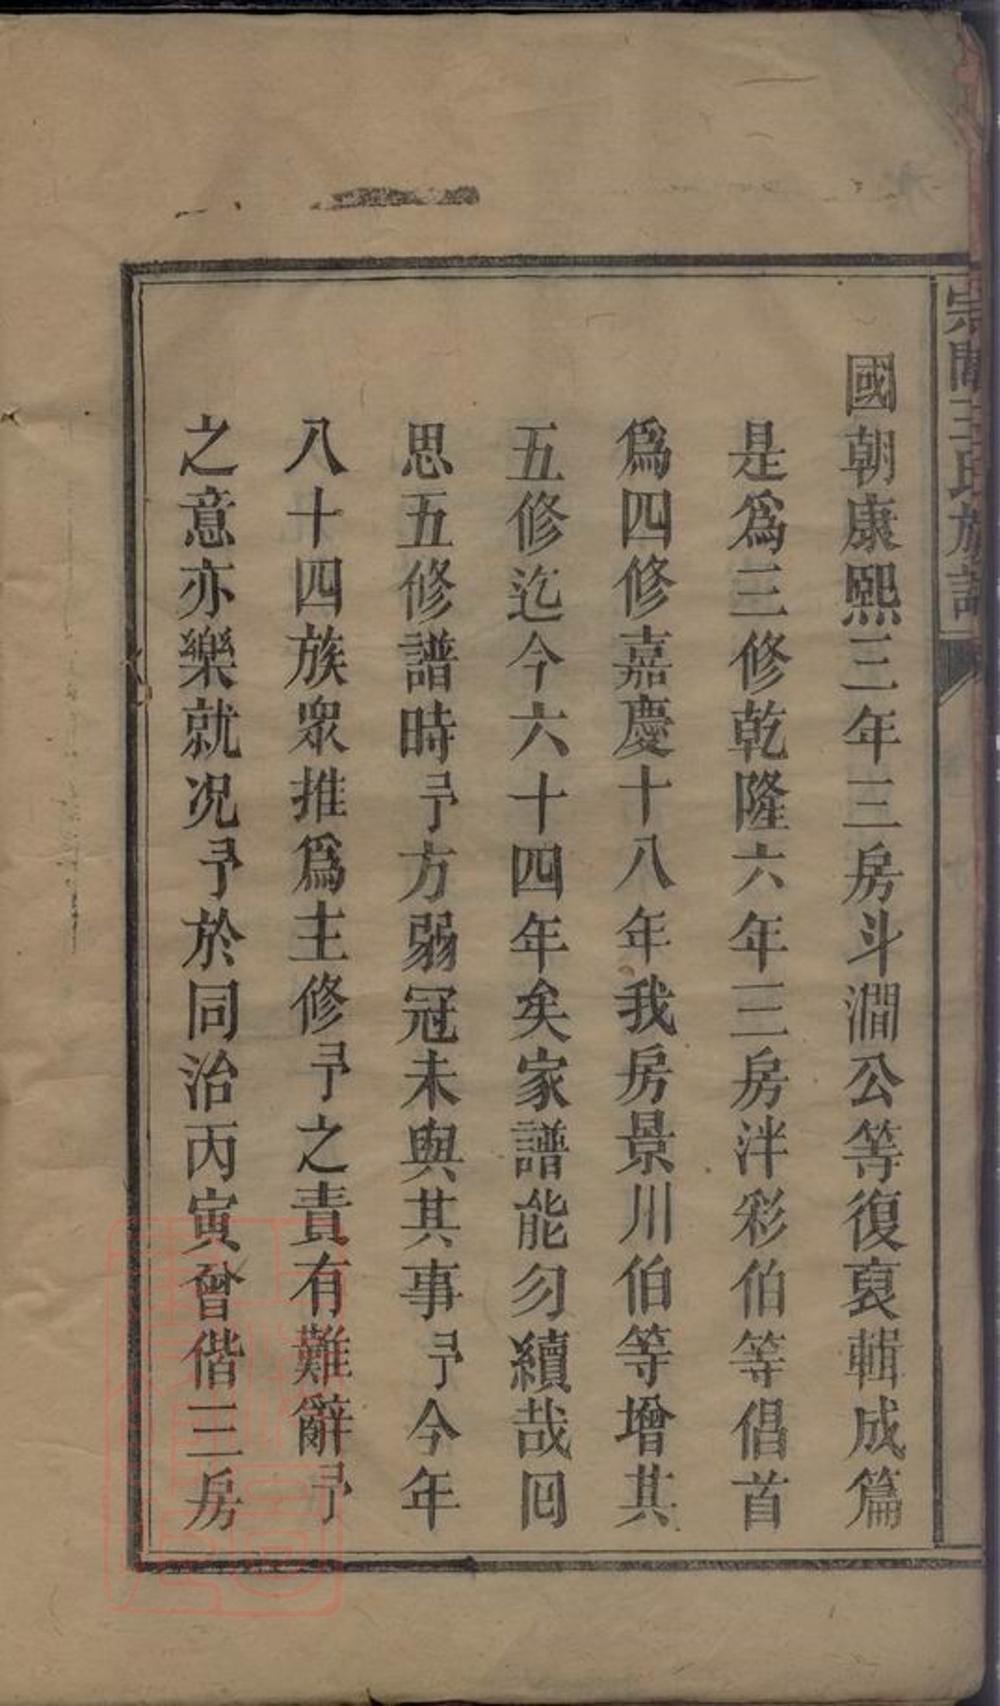 國朝康熙三年三房斗澗公等復裒輯成篇
是爲三修乾隆六年三房泮彩伯等倡首
爲四修嘉慶十八年我房景川伯等增其
五修迄今六十四年矣家譜能勿續哉囘
思五修譜時予方弱冠未與其事予今年
八十四族眾推爲主修予之責有難辭予
之意亦樂就况予於同治丙寅曾偕三房